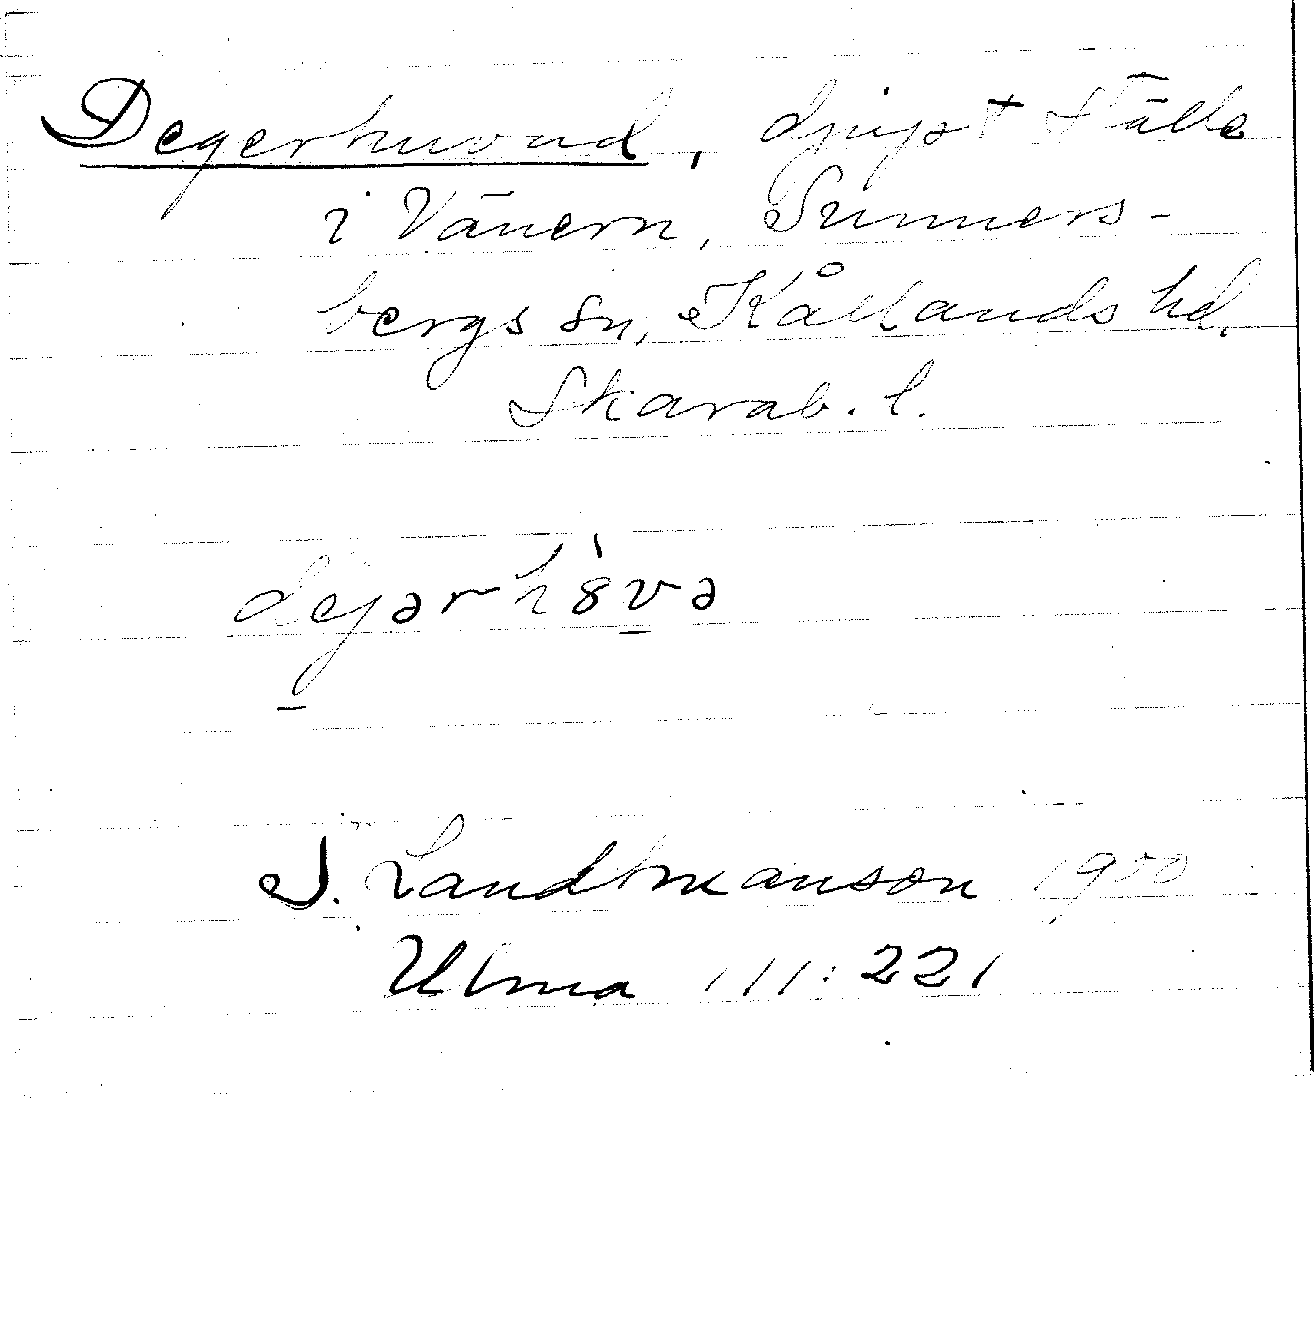 Degerhuvud, djupt ställe
i Vänern, Sunners-
bergs sn, Kållands hd.
Skarab. l.
dejərh8̀və
S. Landtmanson 1900
Ulma 111:221